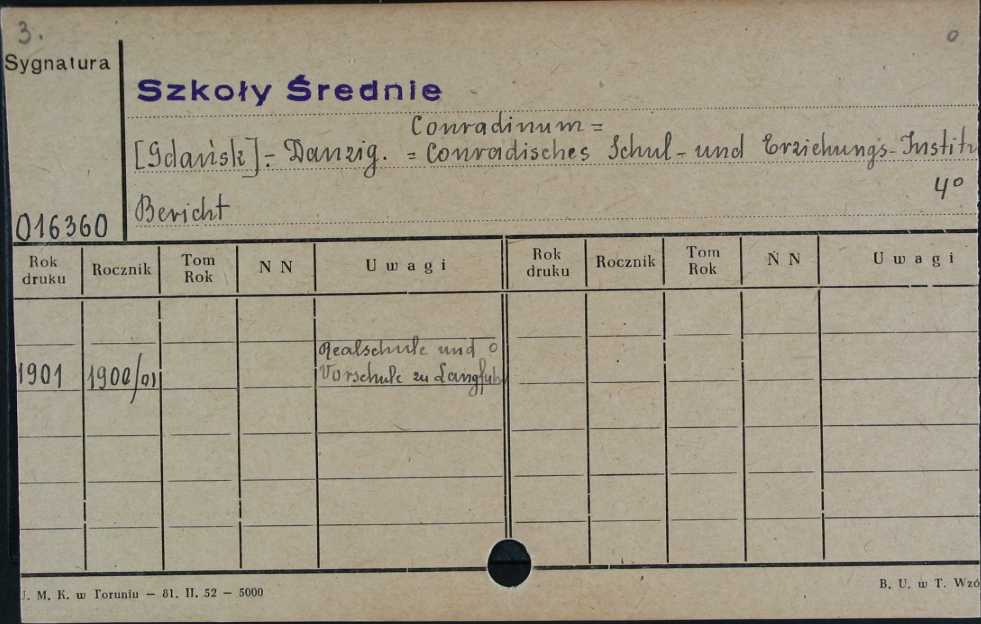 3.
o
Sygnatura
Szkoły Średnie
Conradinum =
[Gdańsk] = Danzig. = Conradisches Schul - und Erziehungs - Institu
4°
Bericht
016360
Rok druku Rocznik Tom Rok N N Uwagi Rok druku Rocznik Tom Rok N N Uwagi
Realschule und o
1901 1900/01 Vorschule zu Langfuhr
J. M. K. w Toruniu — 81. II. 52 — 5000
B. U. w T. Wzó